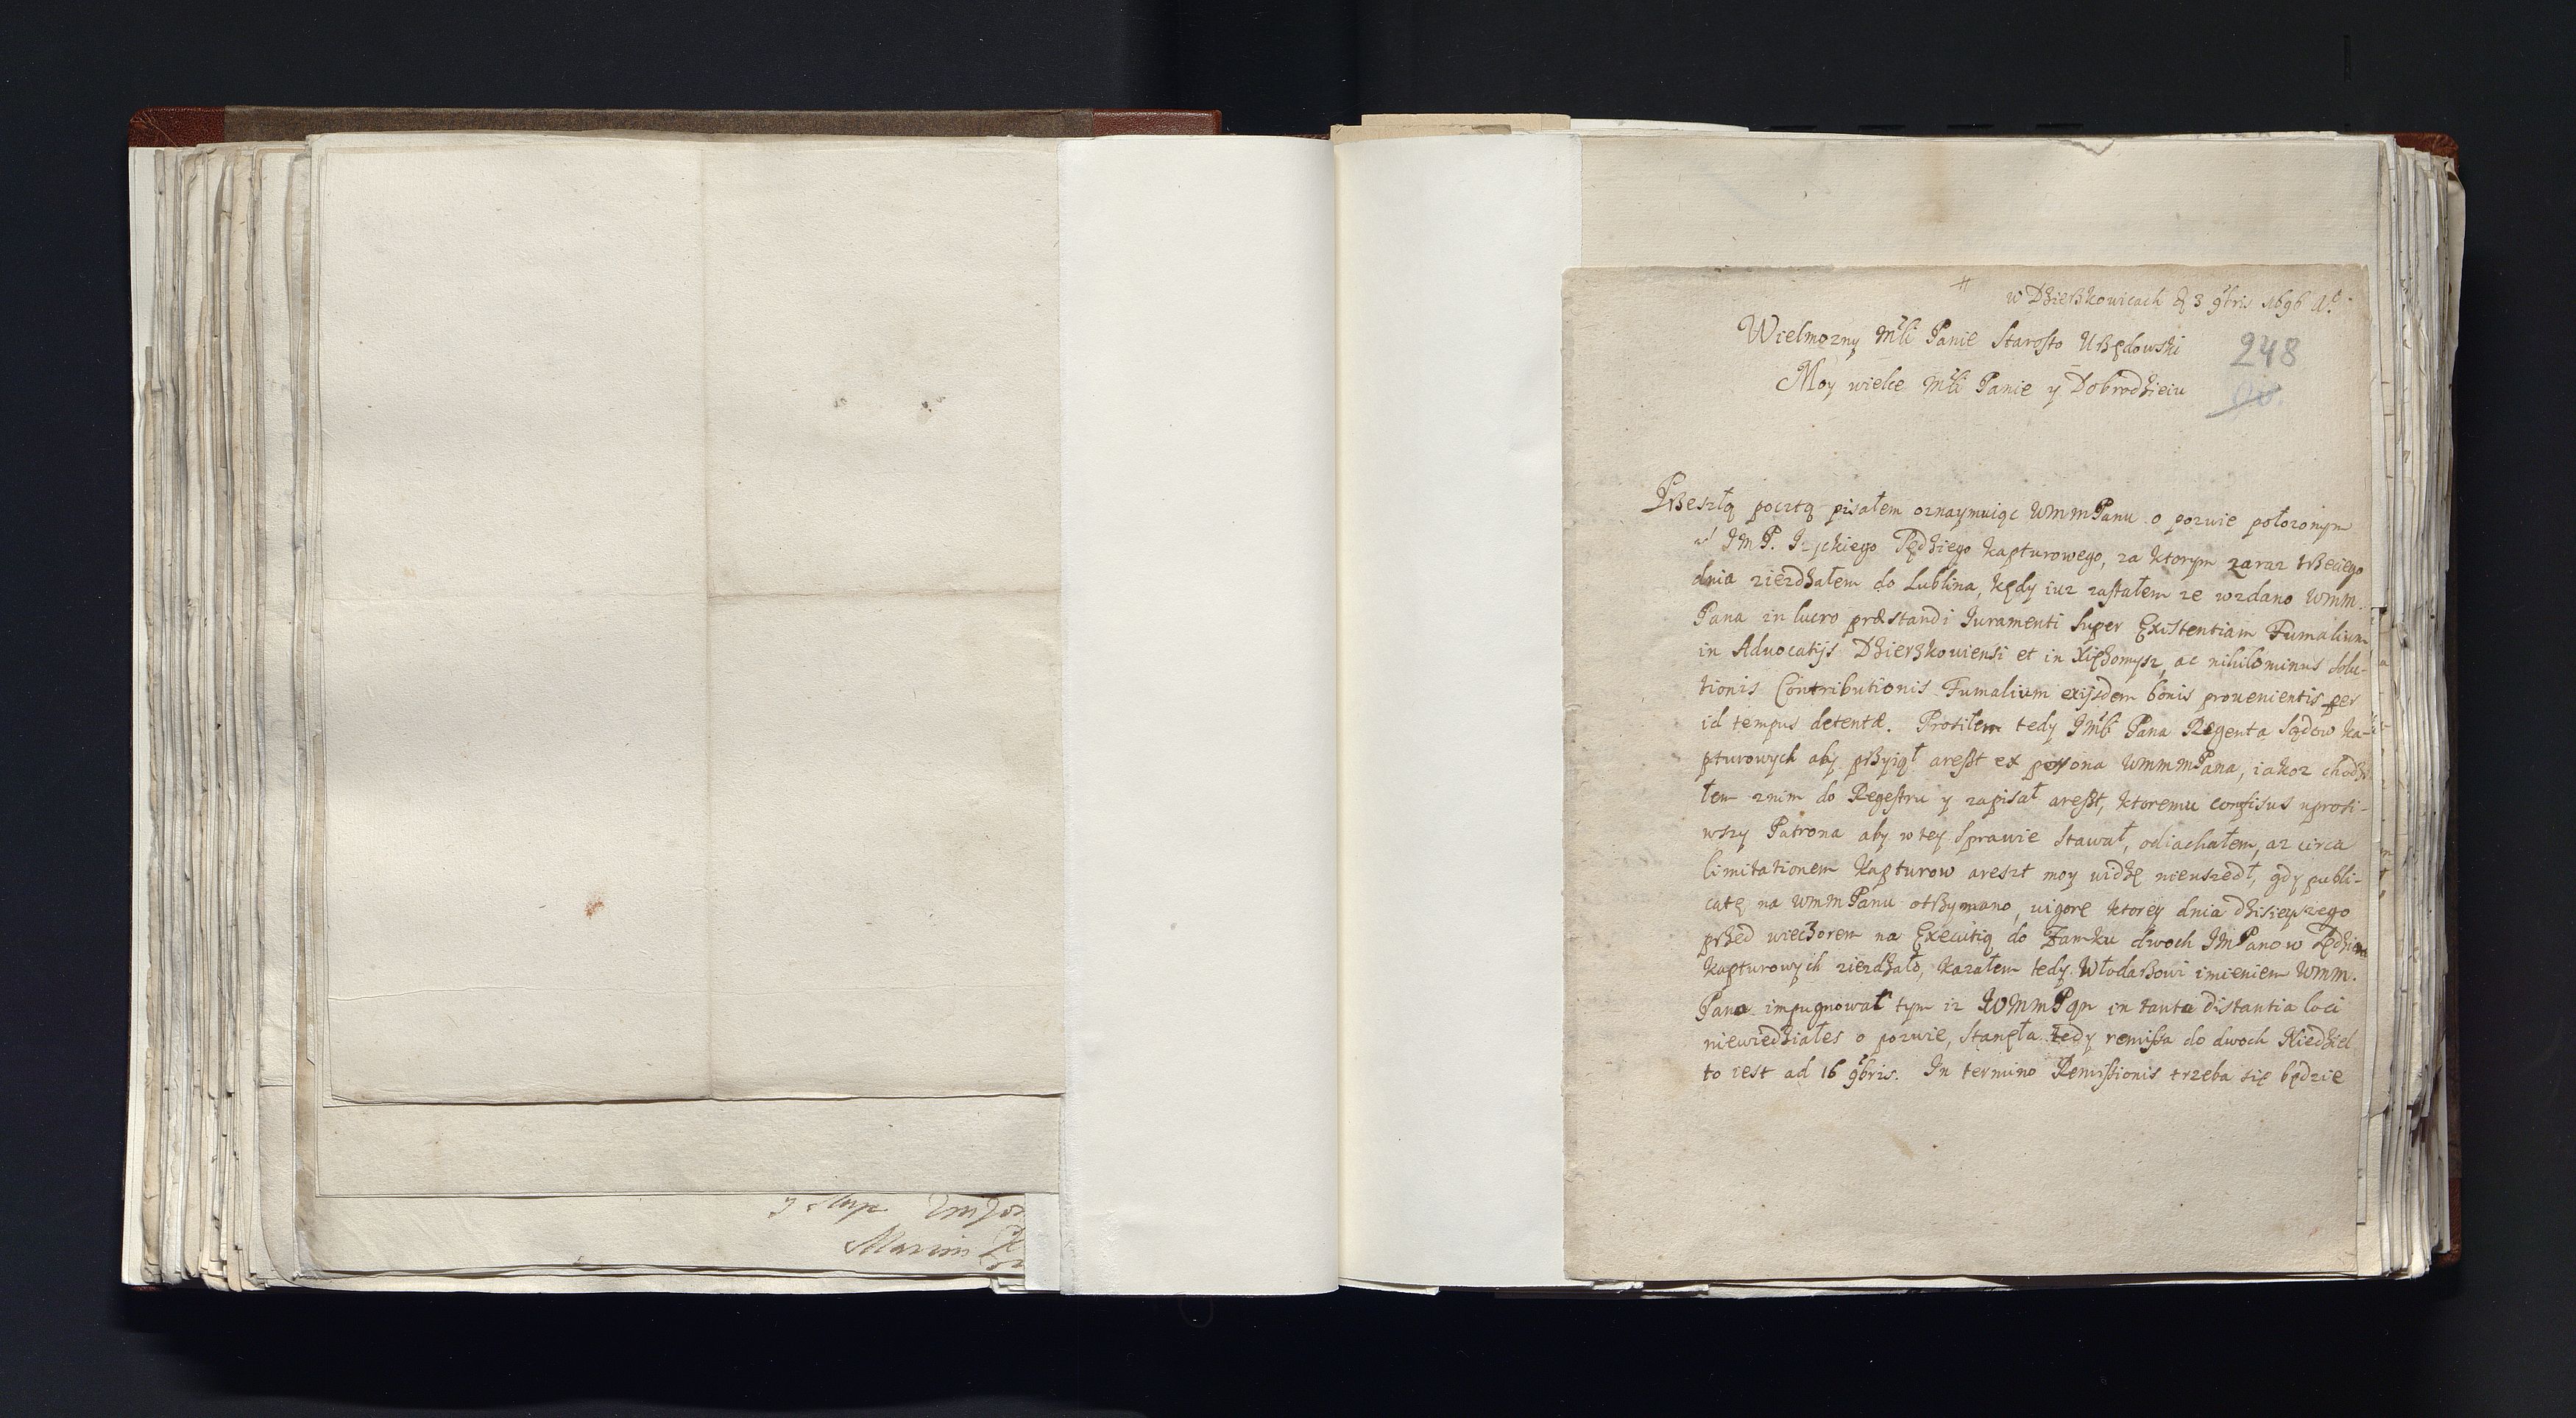 w Dzierzkowicach d 3 9bris 1696 A.
Wielmozny Mśći Panie Starosto Urzędowski
248
Moy wielce Mśći Panie y Dobrodzieiu
Przeszłą pocztą pisałem oznaymuiąc WmmPanu o pozwie położonym
JmP. Sędziego kapturowego, za ktorym zaraz trzeciego
dnia ziezdzałem do Lublina, kędy iuz zastałem ze wzdano Wmm.
Pana in lucro præstandi Juramenti super Existentiam Fumalium
in Advocatijs Dzierzkouiensi et in Xięzomysz, ac nihilominus solu-
tionis Contributionis Fumalium exijsdem bonis prouenientis per
id tempus detentæ. Prosiłem tedy Jmści Pana Regenta Sądow ka-
pturowych aby przyiął areszt ex persona WmmmPana, iakoz chodzi
łem znim do Regestru y zapisał areszt, ktoremu confisus uprosi-
wszy Patrona aby w tey sprawie stawał, odiachałem, az circa
limitationem kapturow areszt moy widzę nieuszedł, gdy publi-
catę na WmmPanu otrzymano, uigore ktorey dnia dzisieyszego
przed wieczorem na Executią do Zamku dwoch JmPanow Sędziow
kapturowych ziezdzało, kazałem tedy Włodarzowi imieniem Wmm.
Pana impugnowat tym iz WMmPan in tanta distantia loci
niewiedziałes o pozwie, stanęła tedy remissa do dwoch Niedziel
to iest ad 16 9bris. In termino Remissionis trzeba się będzie
Marcin